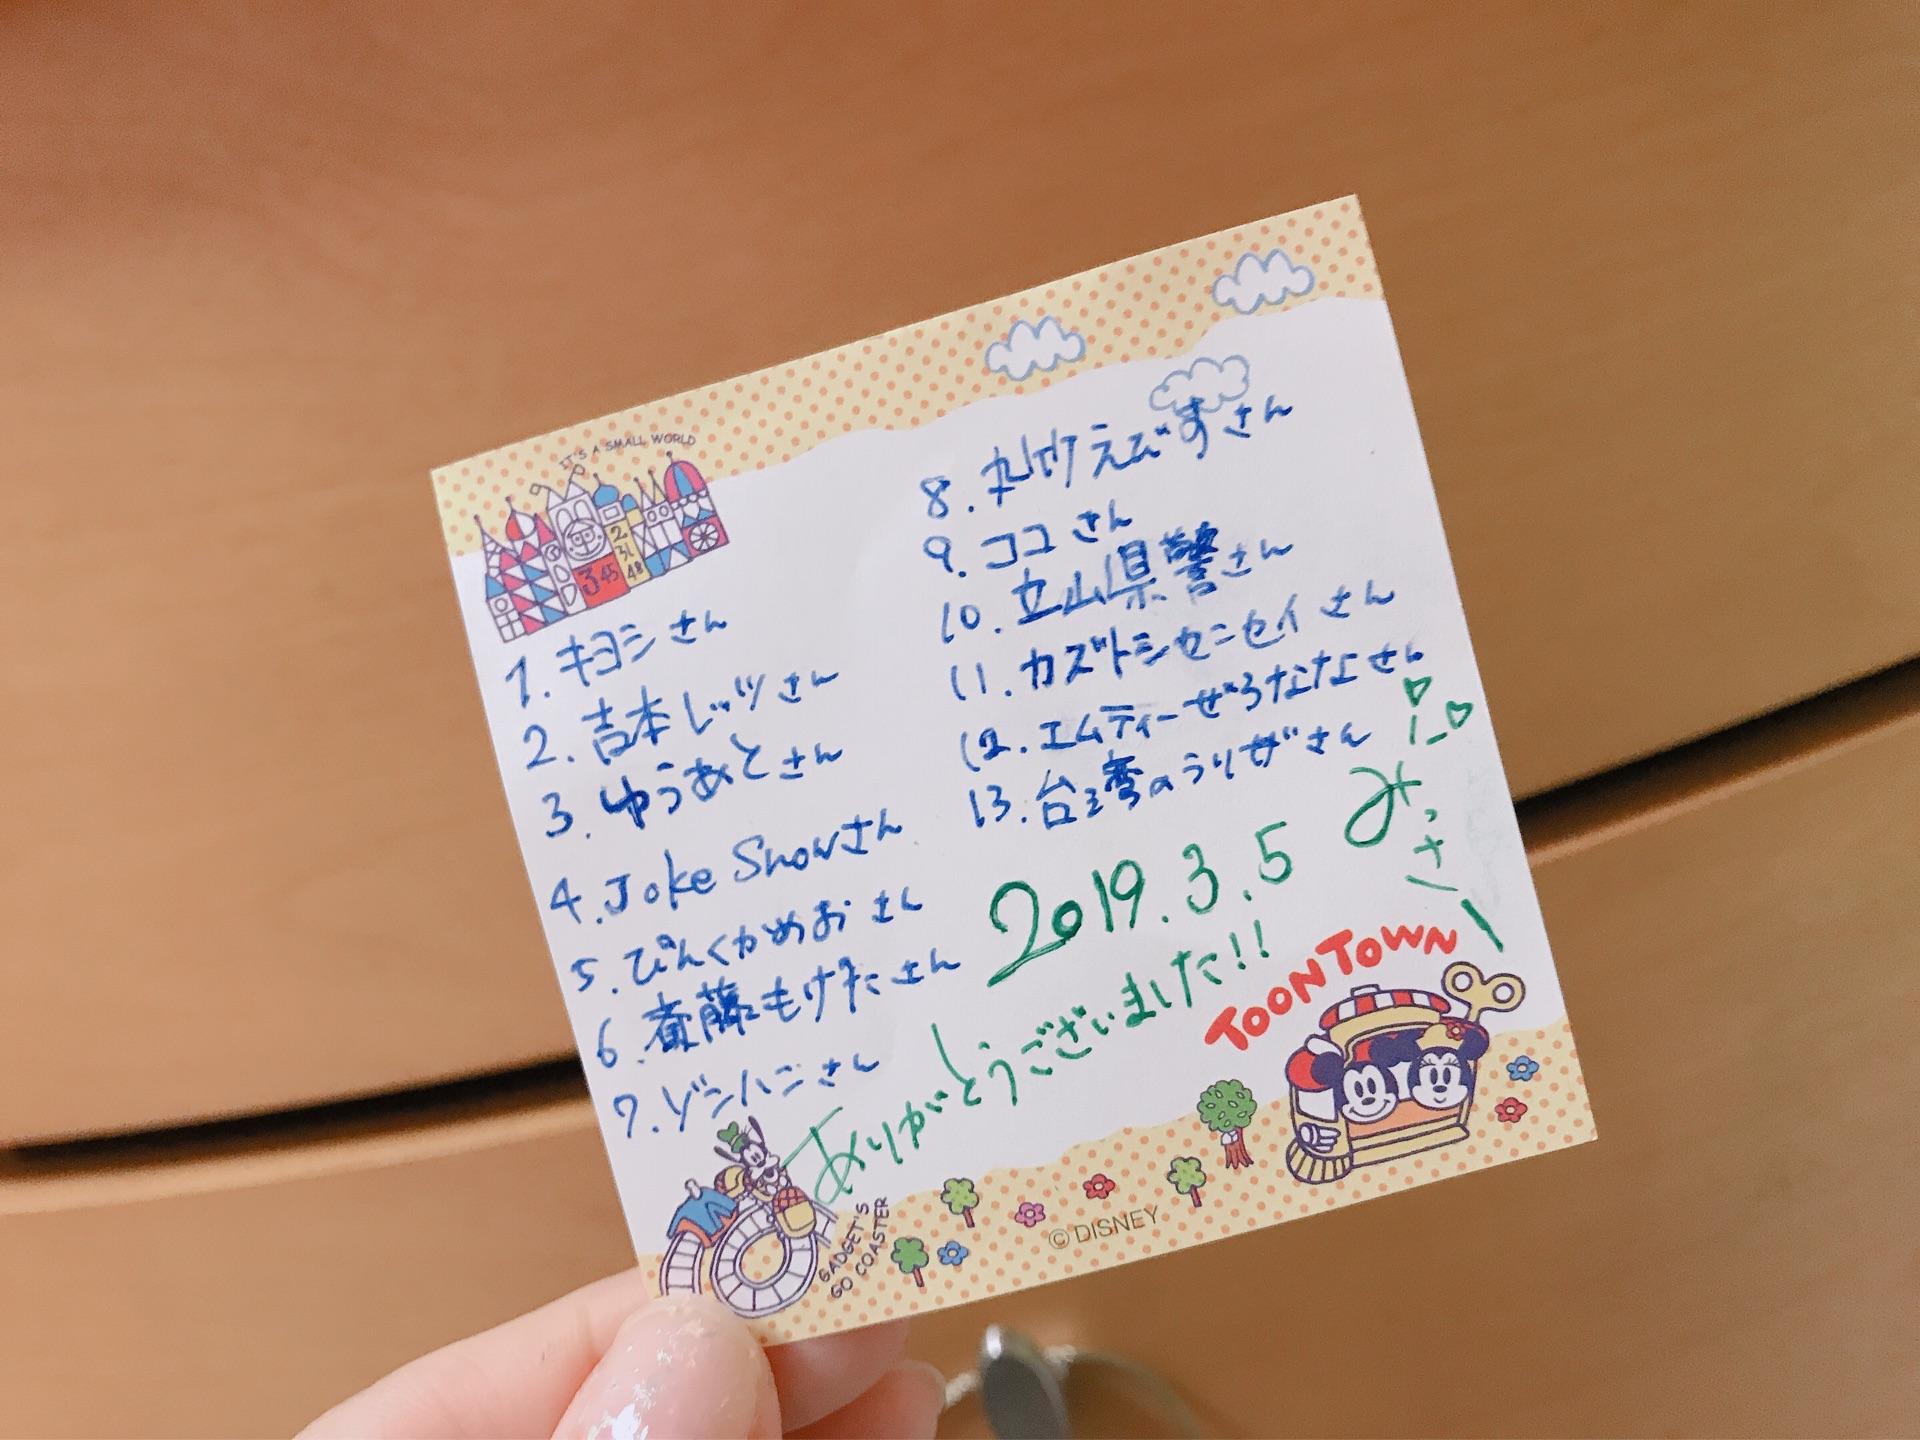 IT'S A SMALL WORLD
1. キヨシさん
2. 吉本レッツさん
3. ゆうあとさん
4. Joke Snowさん
5. ぴんくかめおさん
6. 斎藤もけたさん
7. ゾンハニさん
8. 丸竹えびすさん
9. ココさん
10. 立山県警さん
11. カズトシセンセイさん
12. エムティーぜろななさん
13. 台湾のうりざさん
みっさー
2019.3.5
ありがとうございました!!
TOONTOWN
GADGET'S
GO COASTER
© DISNEY